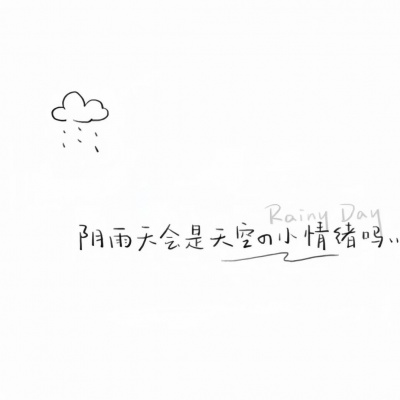 Rainy Day
阴雨天会是天空の小情绪吗..